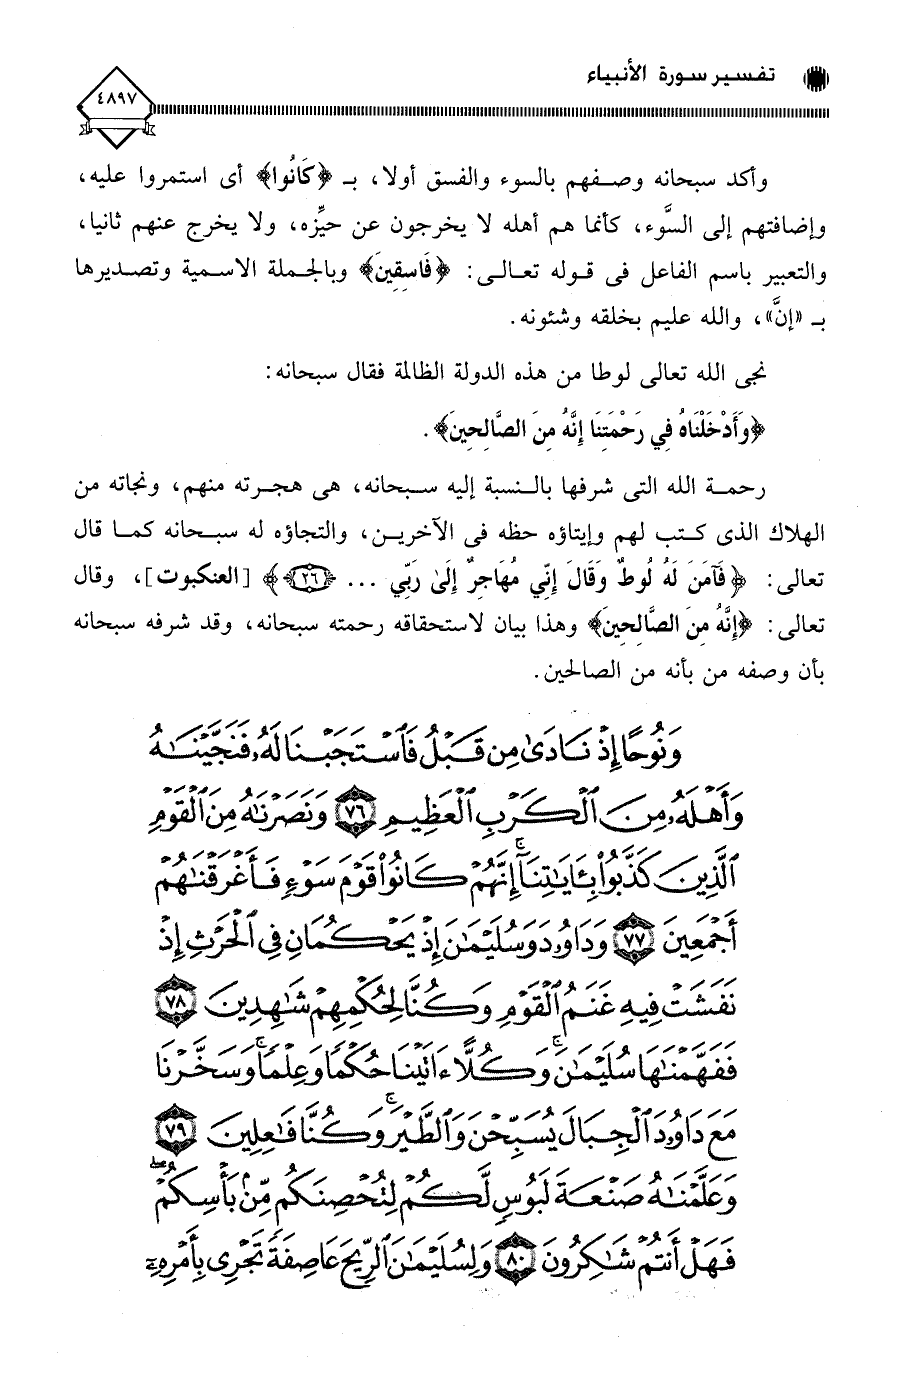 تفسير سورة الأنبياء
٤٨٩٧
وأكد سبحانه وصفهم بالسوء والفسق أولا، بـ ﴿كَانُوا﴾ أى استمروا عليه،
وإضافتهم إلى السَّوء، كأنما هم أهله لا يخرجون عن حيِّزه، ولا يخرج عنهم ثانيا،
والتعبير باسم الفاعل فى قوله تعالى: ﴿فَاسِقِينَ﴾ وبالجملة الاسمية وتصديرها
بـ «إنَّ»، والله عليم بخلقه وشئونه.
نجى الله تعالى لوطا من هذه الدولة الظالمة فقال سبحانه:
﴿وَأَدْخَلْنَاهُ فِي رَحْمَتِنَا إِنَّهُ مِنَ الصَّالِحِينَ﴾.
رحمة الله التى شرفها بالنسبة إليه سبحانه، هى هجرته منهم، ونجاته من
الهلاك الذى كتب لهم وإيتاؤه حظه فى الآخرين، والتجاؤه له سبحانه كما قال
تعالى: ﴿فَآمَنَ لَهُ لُوطٌ وَقَالَ إِنِّي مُهَاجِرٌ إِلَىٰ رَبِّي ... ﴿٢٦﴾﴾ [العنكبوت]، وقال
تعالى: ﴿إِنَّهُ مِنَ الصَّالِحِينَ﴾ وهذا بيان لاستحقاقه رحمته سبحانه، وقد شرفه سبحانه
بأن وصفه من بأنه من الصالحين.
وَنُوحًا إِذْ نَادَىٰ مِن قَبْلُ فَٱسْتَجَبْنَا لَهُۥ فَنَجَّيْنَـٰهُ
وَأَهْلَهُۥ مِنَ ٱلْكَرْبِ ٱلْعَظِيمِ ﴿٧٦﴾ وَنَصَرْنَـٰهُ مِنَ ٱلْقَوْمِ
ٱلَّذِينَ كَذَّبُوا۟ بِـَٔايَـٰتِنَآ ۚ إِنَّهُمْ كَانُوا۟ قَوْمَ سَوْءٍ فَأَغْرَقْنَـٰهُمْ
أَجْمَعِينَ ﴿٧٧﴾ وَدَاوُۥدَ وَسُلَيْمَـٰنَ إِذْ يَحْكُمَانِ فِى ٱلْحَرْثِ إِذْ
نَفَشَتْ فِيهِ غَنَمُ ٱلْقَوْمِ وَكُنَّا لِحُكْمِهِمْ شَـٰهِدِينَ ﴿٧٨﴾
فَفَهَّمْنَـٰهَا سُلَيْمَـٰنَ ۚ وَكُلًّا ءَاتَيْنَا حُكْمًا وَعِلْمًا ۚ وَسَخَّرْنَا
مَعَ دَاوُۥدَ ٱلْجِبَالَ يُسَبِّحْنَ وَٱلطَّيْرَ ۚ وَكُنَّا فَـٰعِلِينَ ﴿٧٩﴾
وَعَلَّمْنَـٰهُ صَنْعَةَ لَبُوسٍ لَّكُمْ لِتُحْصِنَكُم مِّنۢ بَأْسِكُمْ ۖ
فَهَلْ أَنتُمْ شَـٰكِرُونَ ﴿٨٠﴾ وَلِسُلَيْمَـٰنَ ٱلرِّيحَ عَاصِفَةً تَجْرِى بِأَمْرِهِۦٓ